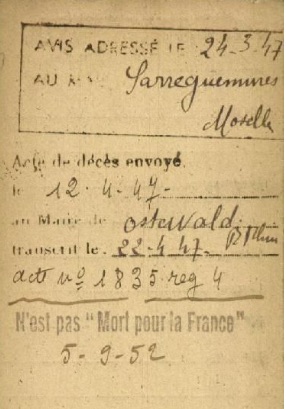 AVIS ADRESSÉ LE 24-3-47
AU Sarreguemines
Moselle
Acte de décès envoyé
le 12.4.47.
au Maire de Ostwald.
B Rhin
transcrit le 22-4 47.
acte nº 1835 reg 4
N'est pas "Mort pour la France"
5-9-52